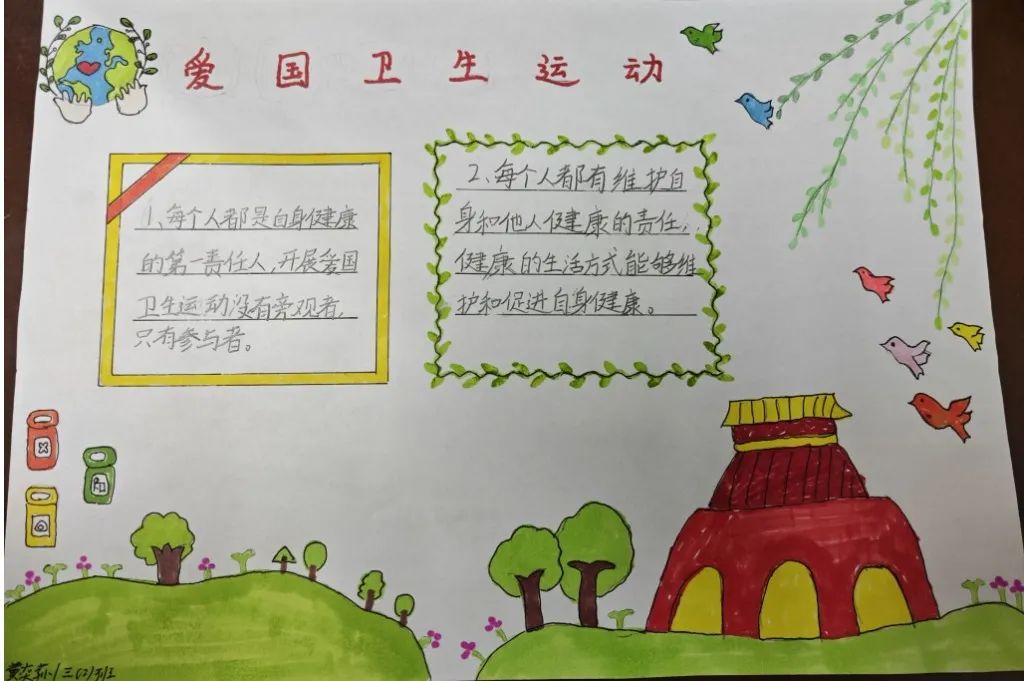 爱国卫生运动
1、每个人都是自身健康
的第一责任人,开展爱国
卫生运动没有旁观者,
只有参与者。
2、每个人都有维护自
身和他人健康的责任,
健康的生活方式能够维
护和促进自身健康。
三(2)班